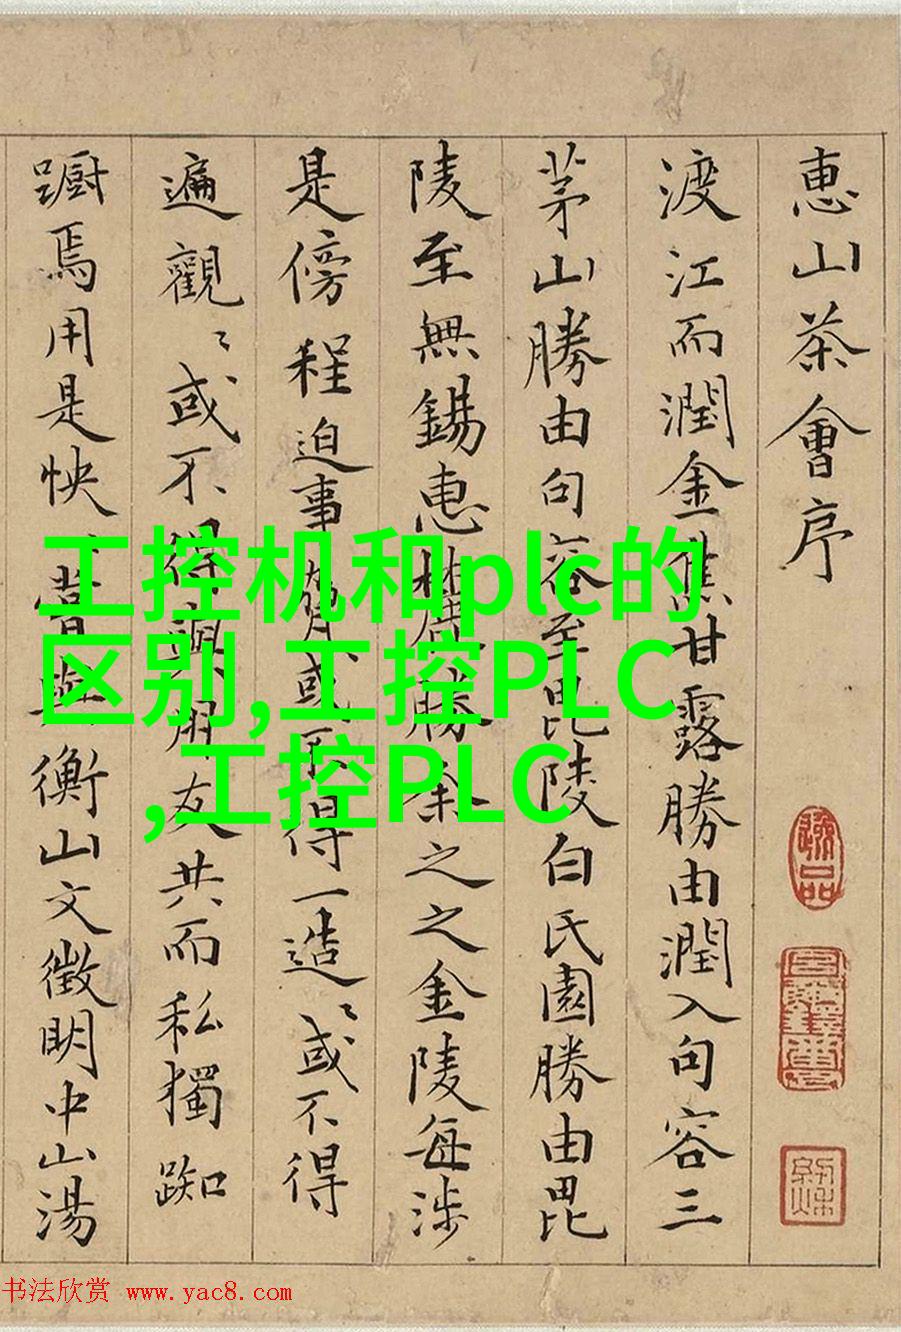 惠山茶會序
渡江而潤金焦甘露勝由潤入句容三
茅山勝由句容至毘陵白氏園勝由毘
陵至無錫惠麓勝余之之金陵每涉
是傍程迫事奪或不得一造〻或不得
遍觀〻或不得與朋友共而私獨踟
躕焉用是怏〻嘗與衡山文徵明中山湯
工控机和plc的
区别,工控PLC
,工控PLC
书法欣赏 www.yac8.com